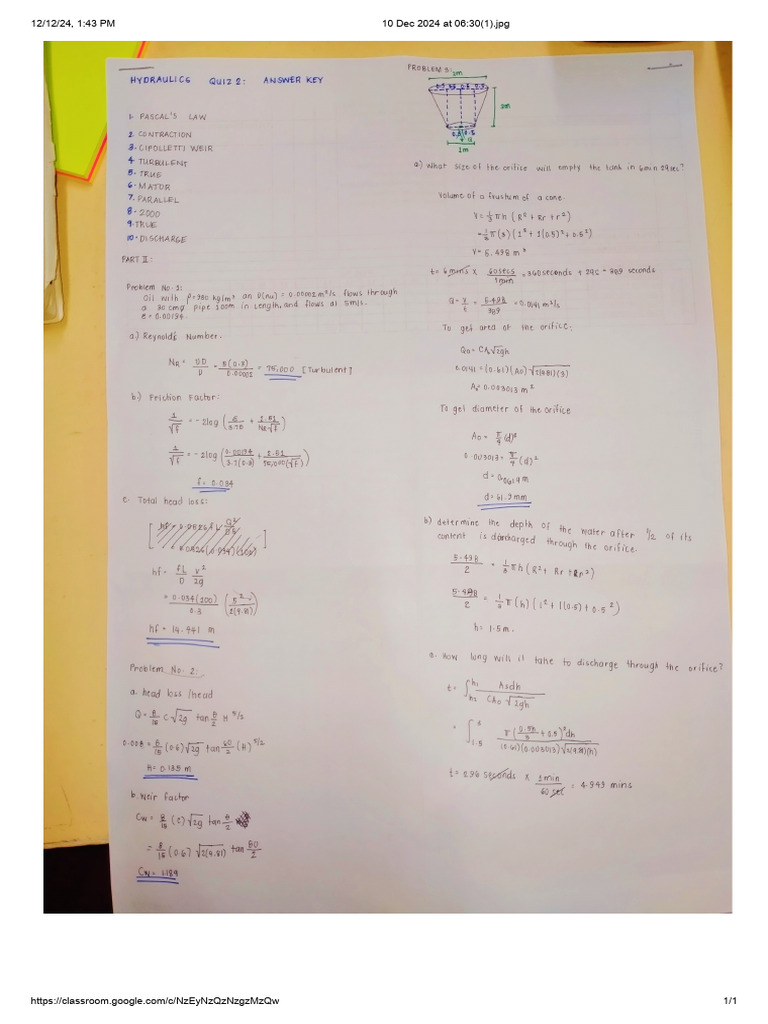 12/12/24, 1:43 PM
10 Dec 2024 at 06:30(1).jpg
HYDRAULICS QUIZ 2: ANSWER KEY
1. PASCAL'S LAW
2. CONTRACTION
3. CIPOLLETTI WEIR
4. TURBULENT
5. TRUE
6. MAJOR
7. PARALLEL
8. 2000
9. TRUE
10. DISCHARGE
PART II:
Problem No. 1:
Oil with ρ=950 kg/m³ an υ(nu) = 0.00002 m²/s flows through
a 30cmφ pipe 100m in length, and flows at 5m/s.
e = 0.00194.
a.) Reynold's Number:
NR = υD/υ = 5(0.3)/0.00002 = 75,000 [Turbulent]
b.) Friction Factor:
1/√f = -2log (ε/3.7D + 2.51/NR√f)
1/√f = -2log (0.00194/3.7(0.3) + 2.51/75,000(√f))
f = 0.034
c. Total head loss:
hf = fL/D v²/2g
= 0.034(100)/0.3 (5²/2(9.81))
hf = 14.441 m
Problem No. 2:
a. head loss/head
Q = 8/15 C √2g tan θ/2 H^5/2
0.008 = 8/15 (0.6) √2g tan 80/2 (H)^5/2
H = 0.133 m
b. Weir Factor
Cw = 8/15 (C) √2g tan θ/2
= 8/15 (0.6) √2(9.81) tan 80/2
Cw = 1.189
PROBLEM 3:
2m
0.5 0.5 0.5 0.5
3m
0.5 0.5
1m
a) What size of the orifice will empty the tank in 6min 29sec?
Volume of a frustum of a cone.
V = 1/3 πh (R² + Rr + r²)
= 1/3 π(3) (1² + 1(0.5) + 0.5²)
V = 5.498 m³
t = 6 mins x 60secs/1min = 360seconds + 29s = 389 seconds
Q = V/t = 5.498/389 = 0.0141 m³/s
To get area of the orifice:
Qo = CA√2gh
0.0141 = (0.61)(Ao) √2(9.81)(3)
Ao = 0.003013 m²
To get diameter of the orifice
Ao = π/4 (d)²
0.003013 = π/4 (d)²
d = 0.0619 m
d = 61.9 mm
b) determine the depth of the water after 1/2 of its
content is discharged through the orifice.
5.498/2 = 1/3 πh (R² + Rr + r²)
5.498/2 = 1/3 π(h) (1² + 1(0.5) + 0.5²)
h = 1.5m.
c. How long will it take to discharge through the orifice?
t = ∫ h1 h2 Asdh/CAo √2gh
= ∫ 3 1.5 π (0.5h/3 + 0.5)² dh/(0.61)(0.003013) √2(9.81)(h)
t = 296 seconds x 1min/60sec = 4.943 mins
https://classroom.google.com/c/NzEyNzQzNzgzMzQw
1/1